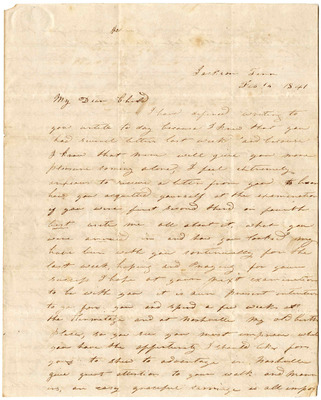 Jackson Tenn
Feb 14 1841
My Dear Child
I have defered writing to
you untile to day because I heard that you
had received letters last week and because
I knew that mine will give you more
pleasure coming alone, I feel extremely
anxious to receive a letter from you to learn
how you acquitted yourself at the examination
if you were first second third or possible
last write me all about it what you
were examined in and how you looked my
heart been with you continually for the
last week, hoping and praying for your
success, I hope at your next examination
to be with you it is our present intention
to go for you and spend a few weeks at
the Hermitage and at Nashville My old battle
place, so you see you must improve while
you have the opportunity I should like for
you to shew to advantage in Nashville
give great attention to your walk and manner
is, an easy graceful carriage is all impor